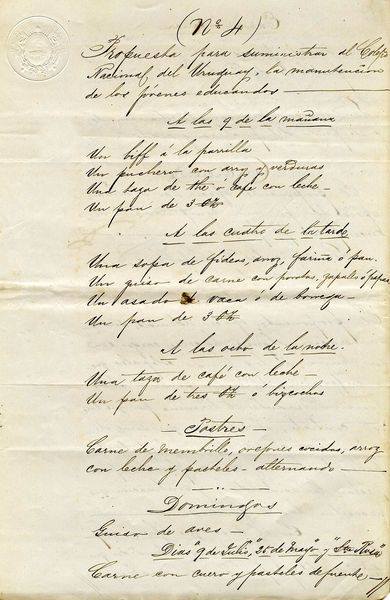 (Nº 4)
Propuesta para suministrar al Colegio
Nacional del Uruguay, la manutencion
de los jóvenes educandos —
A las 9 de la mañana
Un biff á la parrilla
Un puchero con arroz y verduras
Una taza de the ó café con leche —
Un pan de 3 Oz
A las cuatro de la tarde
Una sopa de fideos, arroz, fariña ó pan.
Un guiso de carne con porotos, zapallo ó papas
Un asado de vaca ó de borrega —
Un pan de 3 Oz
A las ocho de la noche.
Una taza de café con leche —
Un pan de tres Oz ó bizcochos
Postres —
Carne de membrillo, orejones cocidos, arroz
con leche y pasteles — alternando —
Domingos
Guiso de aves —
Dias "9 de Julio", "25 de Mayo" y "Sta Rosa"
Carne con cuero y pasteles de fuente —